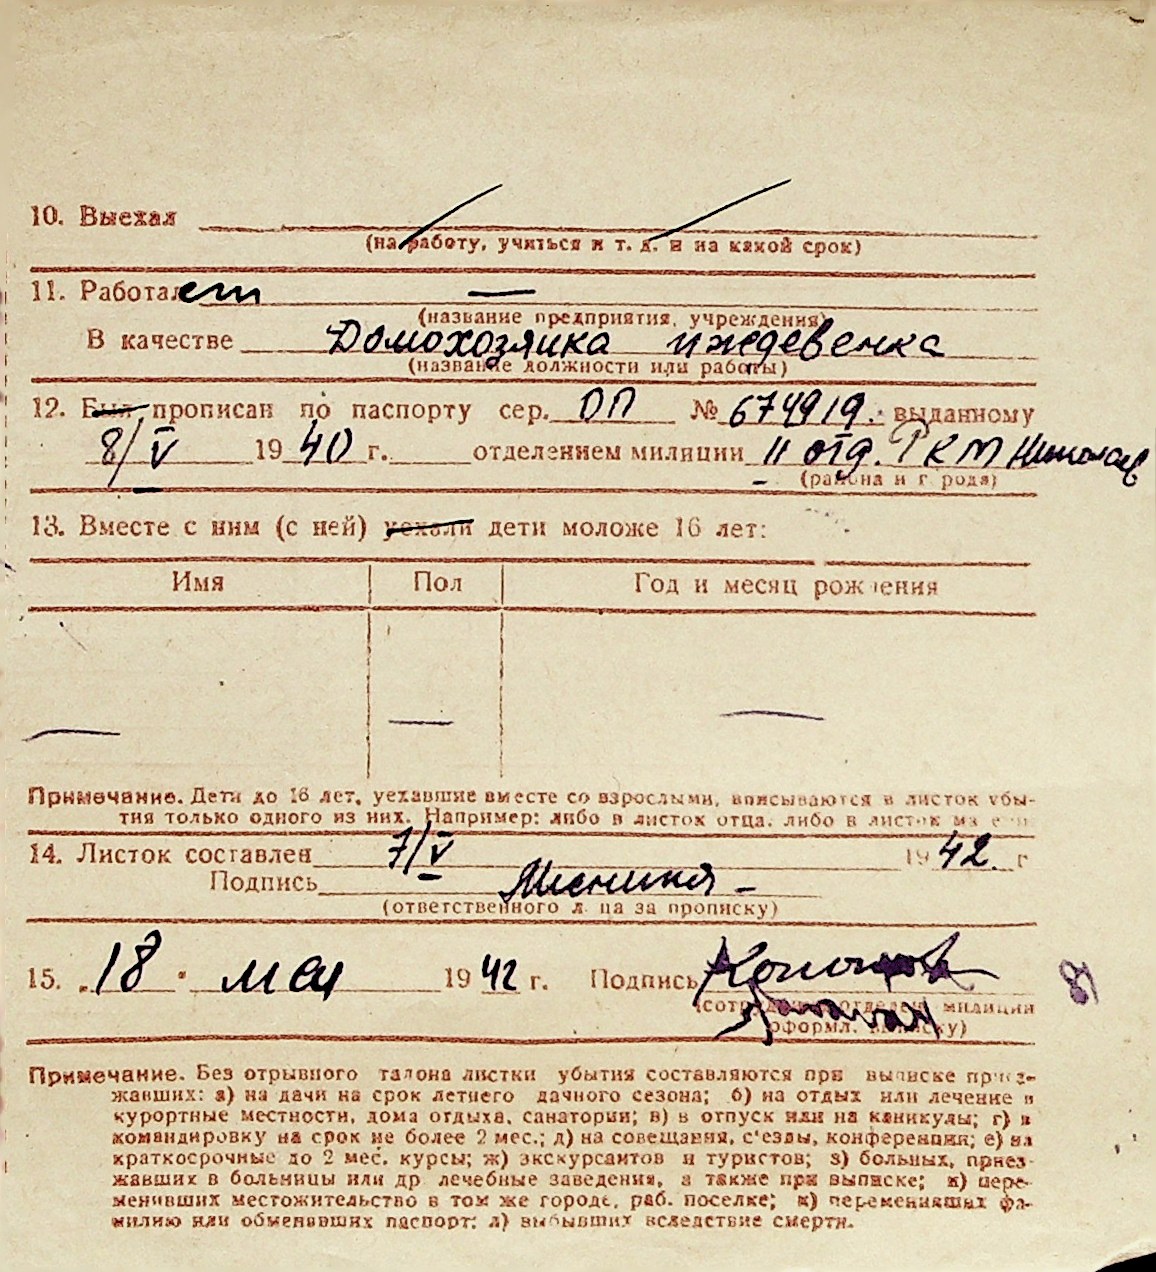 10. Выехал
(на работу, учиться и т. д. и на какой срок)
11. Работает —
(название предприятия, учреждения)
В качестве Домохозяика иждевенка
(название должности или работы)
12. Был прописан по паспорту сер. ОП № 674919. выданному
8/V 1940 г. отделением милиции II отд. РКМ Николаев
(района и города)
13. Вместе с ним (с ней) уехали дети моложе 16 лет:
Имя Пол Год и месяц рождения
— — —
Примечание. Дети до 16 лет, уехавшие вместе со взрослыми, вписываются в листок убы-
тия только одного из них. Например: либо в листок отца, либо в листок матери
14. Листок составлен 7/V 1942. г
Подпись
(ответственного лица за прописку)
15. „18" мая 1942 г. Подпись
(сотрудника отделен. милиции
оформл. выписку)
Примечание. Без отрывного талона листки убытия составляются при выписке приез-
жавших: а) на дачи на срок летнего дачного сезона; б) на отдых или лечение в
курортные местности, дома отдыха, санатории; в) в отпуск или на каникулы; г) в
командировку на срок не более 2 мес.; д) на совещания, с'езды, конференции; е) на
краткосрочные до 2 мес. курсы; ж) экскурсантов и туристов; з) больных, приез-
жавших в больницы или др лечебные заведения, а также при выписке; и) пере-
менивших местожительство в том же городе, раб. поселке; к) переменивших фа-
милию или обменявших паспорт; л) выбывших вследствие смерти.